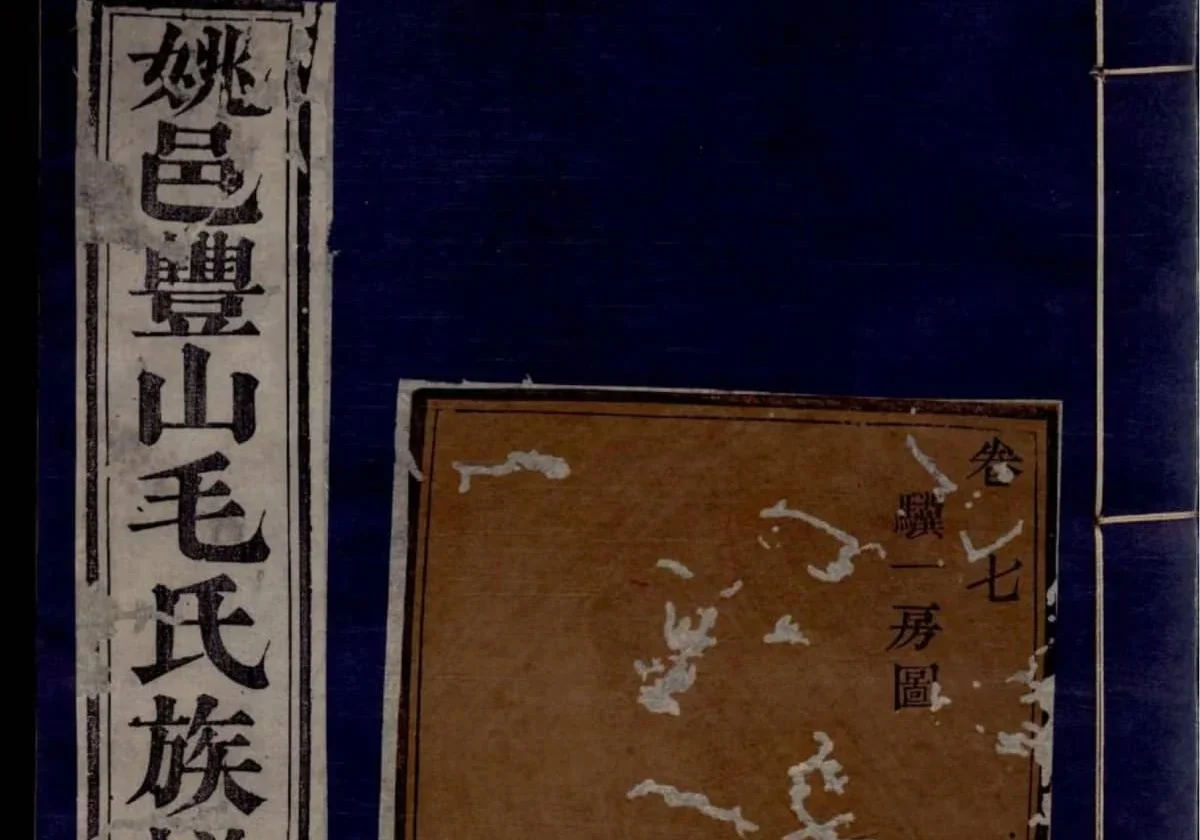 姚邑豐山毛氏族
卷七
驥一房圖